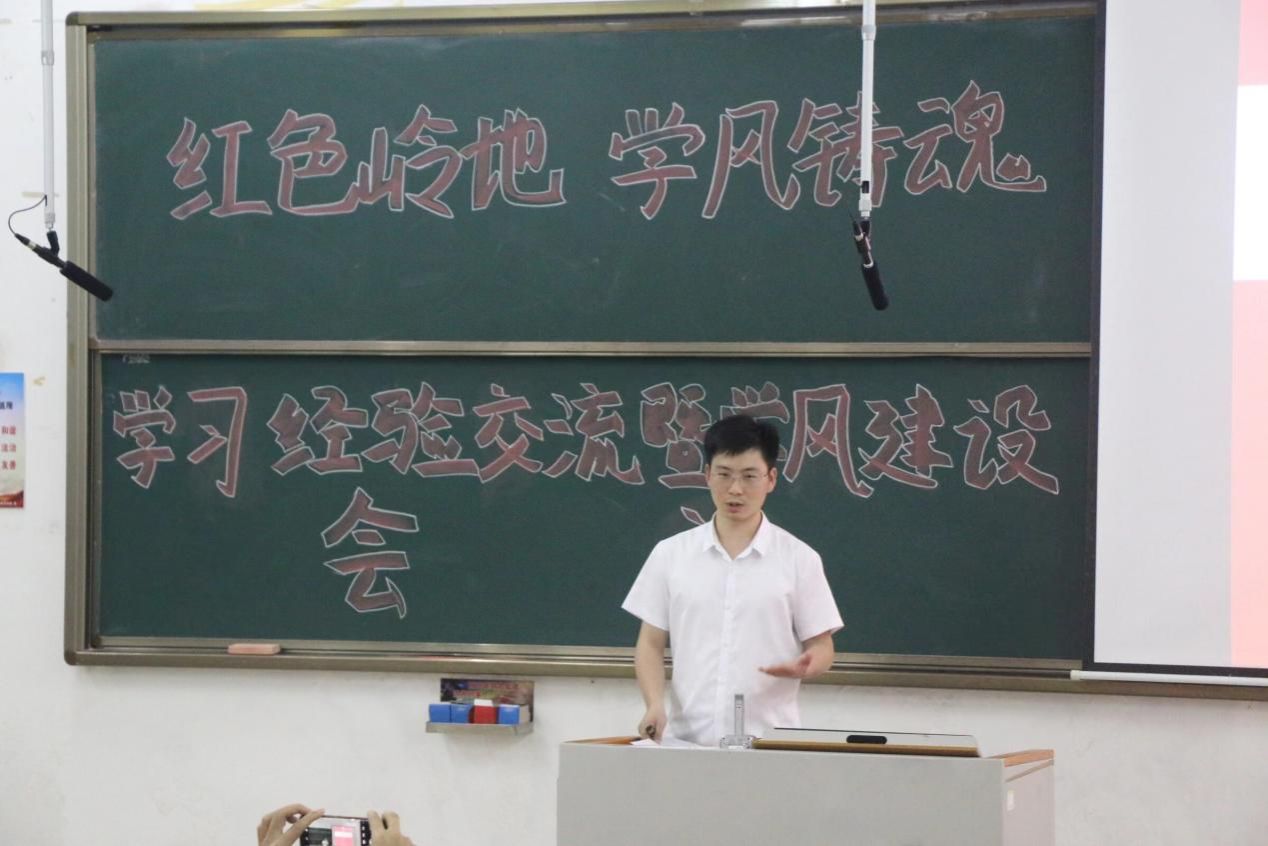 红色岭地 学风铸魂
学习经验交流暨学风建设
会
和谐
友善